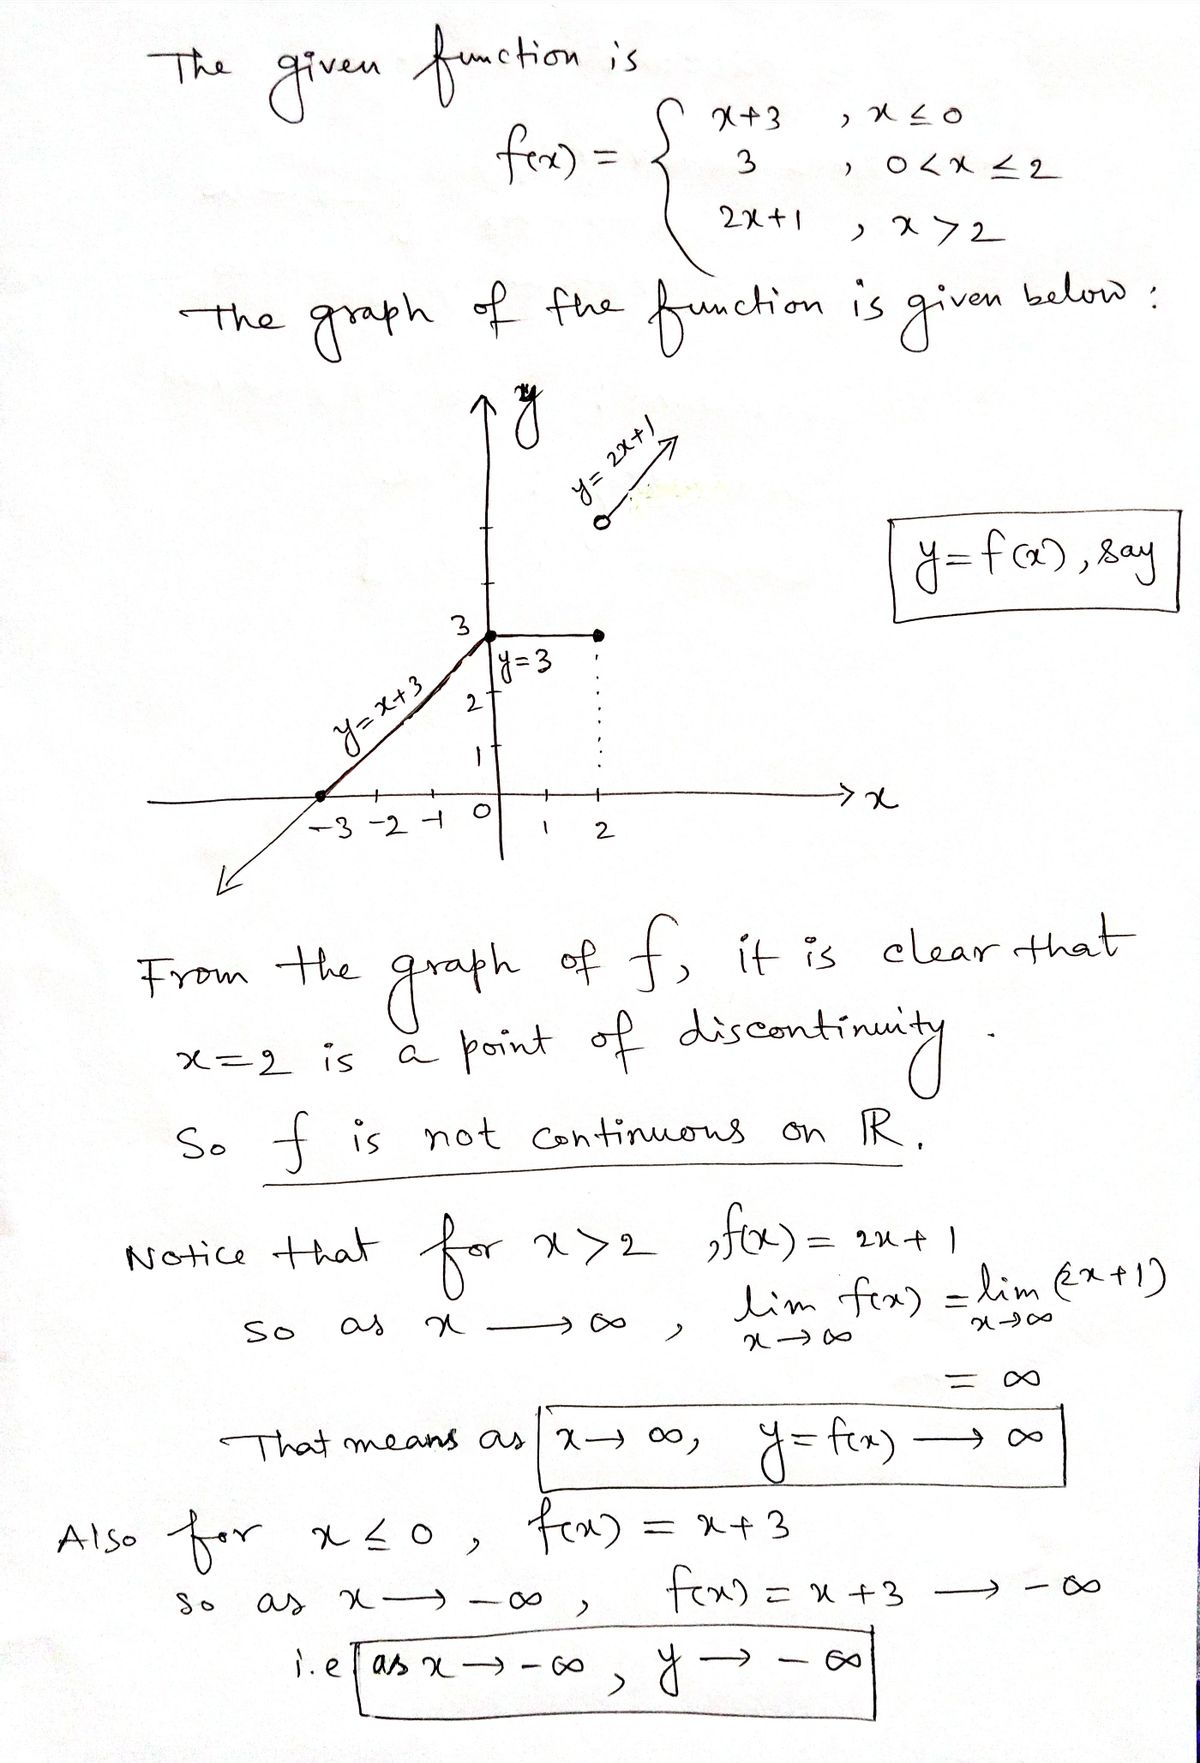 The given function is
f(x) = { x+3 , x ≤ 0
3 , 0 < x ≤ 2
2x+1 , x > 2
The graph of the function is given below :
y
y = 2x+1
y = f(x), say
3
y = 3
y = x+3
2
1
x
-3 -2 -1 0 1 2
From the graph of f, it is clear that
x = 2 is a point of discontinuity .
So f is not continuous on ℝ.
Notice that for x > 2 , f(x) = 2x + 1
so as x → ∞ , lim f(x) = lim (2x+1)
x → ∞ x → ∞
= ∞
That means as x → ∞, y = f(x) → ∞
Also for x ≤ 0 , f(x) = x + 3
so as x → -∞ , f(x) = x + 3 → -∞
i.e as x → -∞ , y → -∞